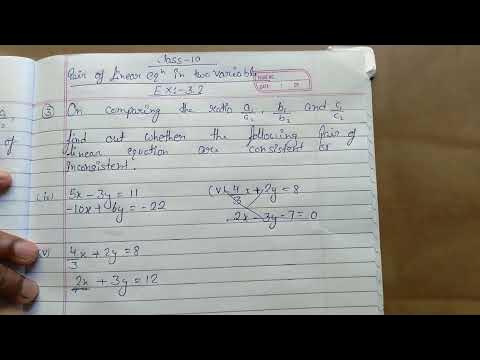 Class-10
Pair of linear eqⁿ in two variable
Ex:-3.2
PAGE NO.
DATE
③ On comparing the ratio a₁/a₂, b₁/b₂ and c₁/c₂
find out whether the following Pair of
linear equation are consistent or
inconsistent.
(iv) 5x - 3y = 11
-10x + 6y = -22
(v) 4/3 x + 2y = 8
2x - 3y - 7 = 0
(v) 4/3 x + 2y = 8
2x + 3y = 12
of